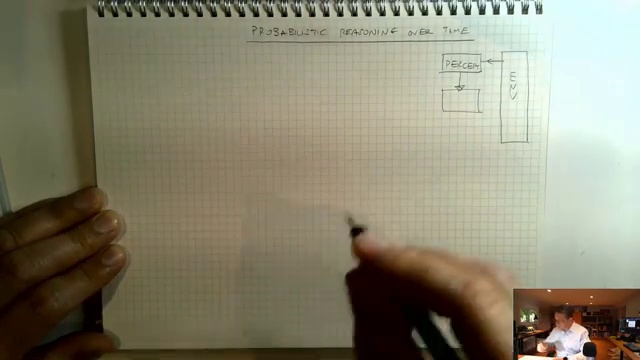 PROBABILISTIC REASONING OVER TIME
PERCEPT
ENV